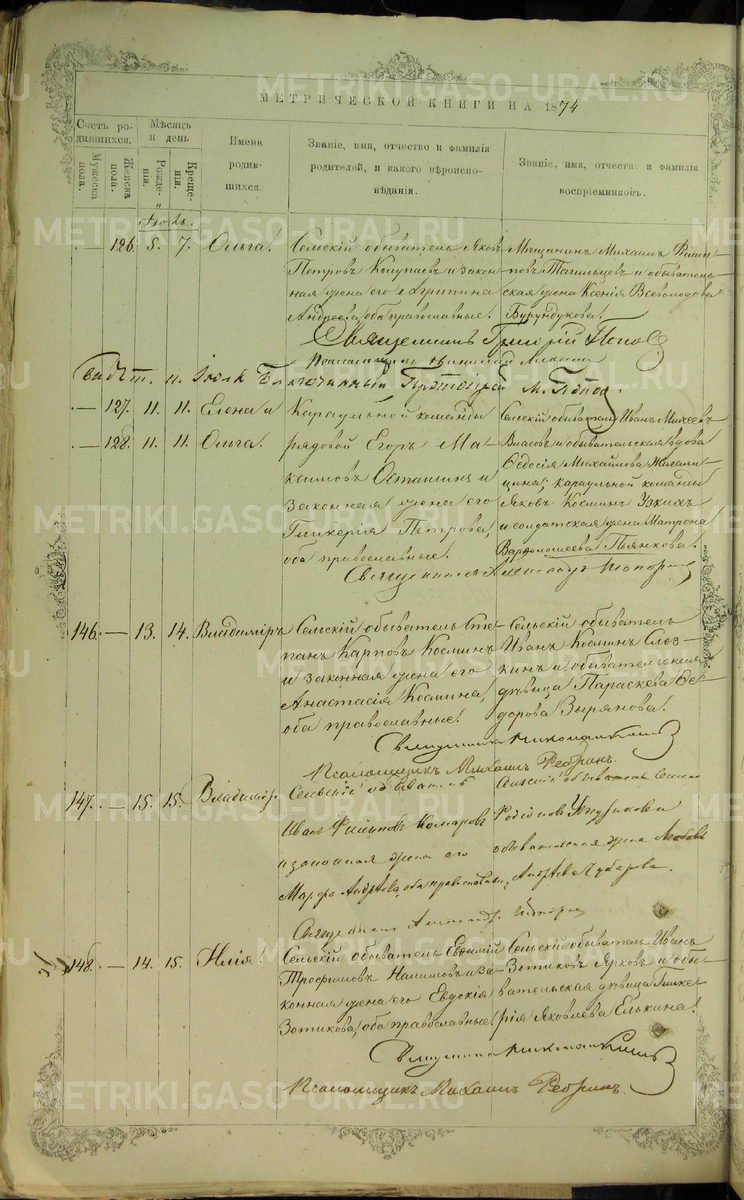 МЕТРИЧЕСКОЙ КНИГИ НА 1874
Счетъ родившихся.
Мужеска пола.
Женска пола.
Мѣсяцъ и день
Рожденія.
Крещенія.
Имена родившихся.
Званіе, имя, отчество и фамилія родителей, и какого вѣроисповѣданія.
Званіе, имя, отчество и фамилія воспріемниковъ.
Іюль.
— 126. 5. 7. Ольга!
Сельскій обыватель Яковъ
Петровъ Колупаевъ и закон-
ная жена его Агрипина
Андреева, оба православные!
Мѣщанинъ Михаилъ Филип-
повъ Тагильцевъ и обыватель-
ская жена Ксенія Всеволодова
Бурундукова!
Священникъ Григорій Попов
11. Іюля Благочинный Протоіерей
— 127. 11. 11. Елена и
— 128. 11. 11. Ольга!
Караульной команды
рядовой Егоръ Ма-
ксимовъ Осташинъ и
законная жена его
Гликерія Петрова,
оба православные.
Сельскій обыватель Иванъ Михеевъ
Власовъ и обывательская вдова
Ѳедосія Михайлова
караульной команды
Яковъ Косминъ Узкихъ
и солдатская жена Матрона
Варѳоломеева Пьянкова.
Священникъ Александръ
146. — 13. 14. Владиміръ
Сельскій обыватель Сте-
панъ Карповъ Косминъ
и законная жена его
Анастасія Космина,
оба православные!
Сельскій обыватель
Иванъ Косминъ Слез-
кинъ и обывательская
дѣвица Параскева Ѳе-
дорова Зырянова!
Священникъ
Псаломщикъ Михаилъ Ребринъ.
147. — 15. 15. Владиміръ
Сельскій обыватель
Иванъ Филиповъ Комаровъ
и законная жена его
Марфа Андреева, оба православные,
Сельскій обыватель
обывательская жена Любовь
Священникъ Александръ
148. — 14. 15. Илія!
Сельскій обыватель Евфимій
Трофимовъ и за-
конная жена его Евдокія
Зотикова, оба православные!
Сельскій обыватель Иванъ
Зотиковъ Ярковъ и обы-
вательская дѣвица Глике-
рія Яковлева Елькина!
Священникъ
Псаломщикъ Михаилъ Ребринъ.
METRIKI.GASO-URAL.RU